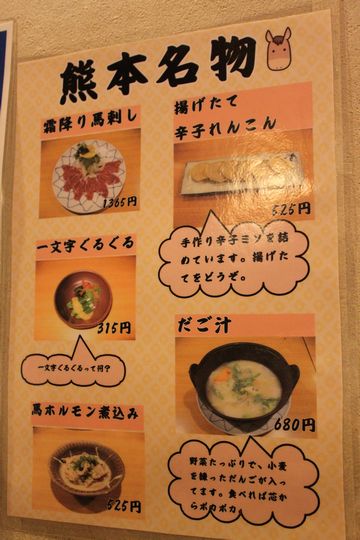 熊本名物
揚げたて
辛子れんこん
525円
手作り辛子ミソを詰
めています。揚げた
てをどうぞ。
だご汁
680円
野菜たっぷりで、小麦
を練っただんごが入っ
てます。食べれば芯か
らポカポカ
霜降り馬刺し
1365円
一文字くるくる
315円
一文字くるくるって何？
馬ホルモン煮込み
525円